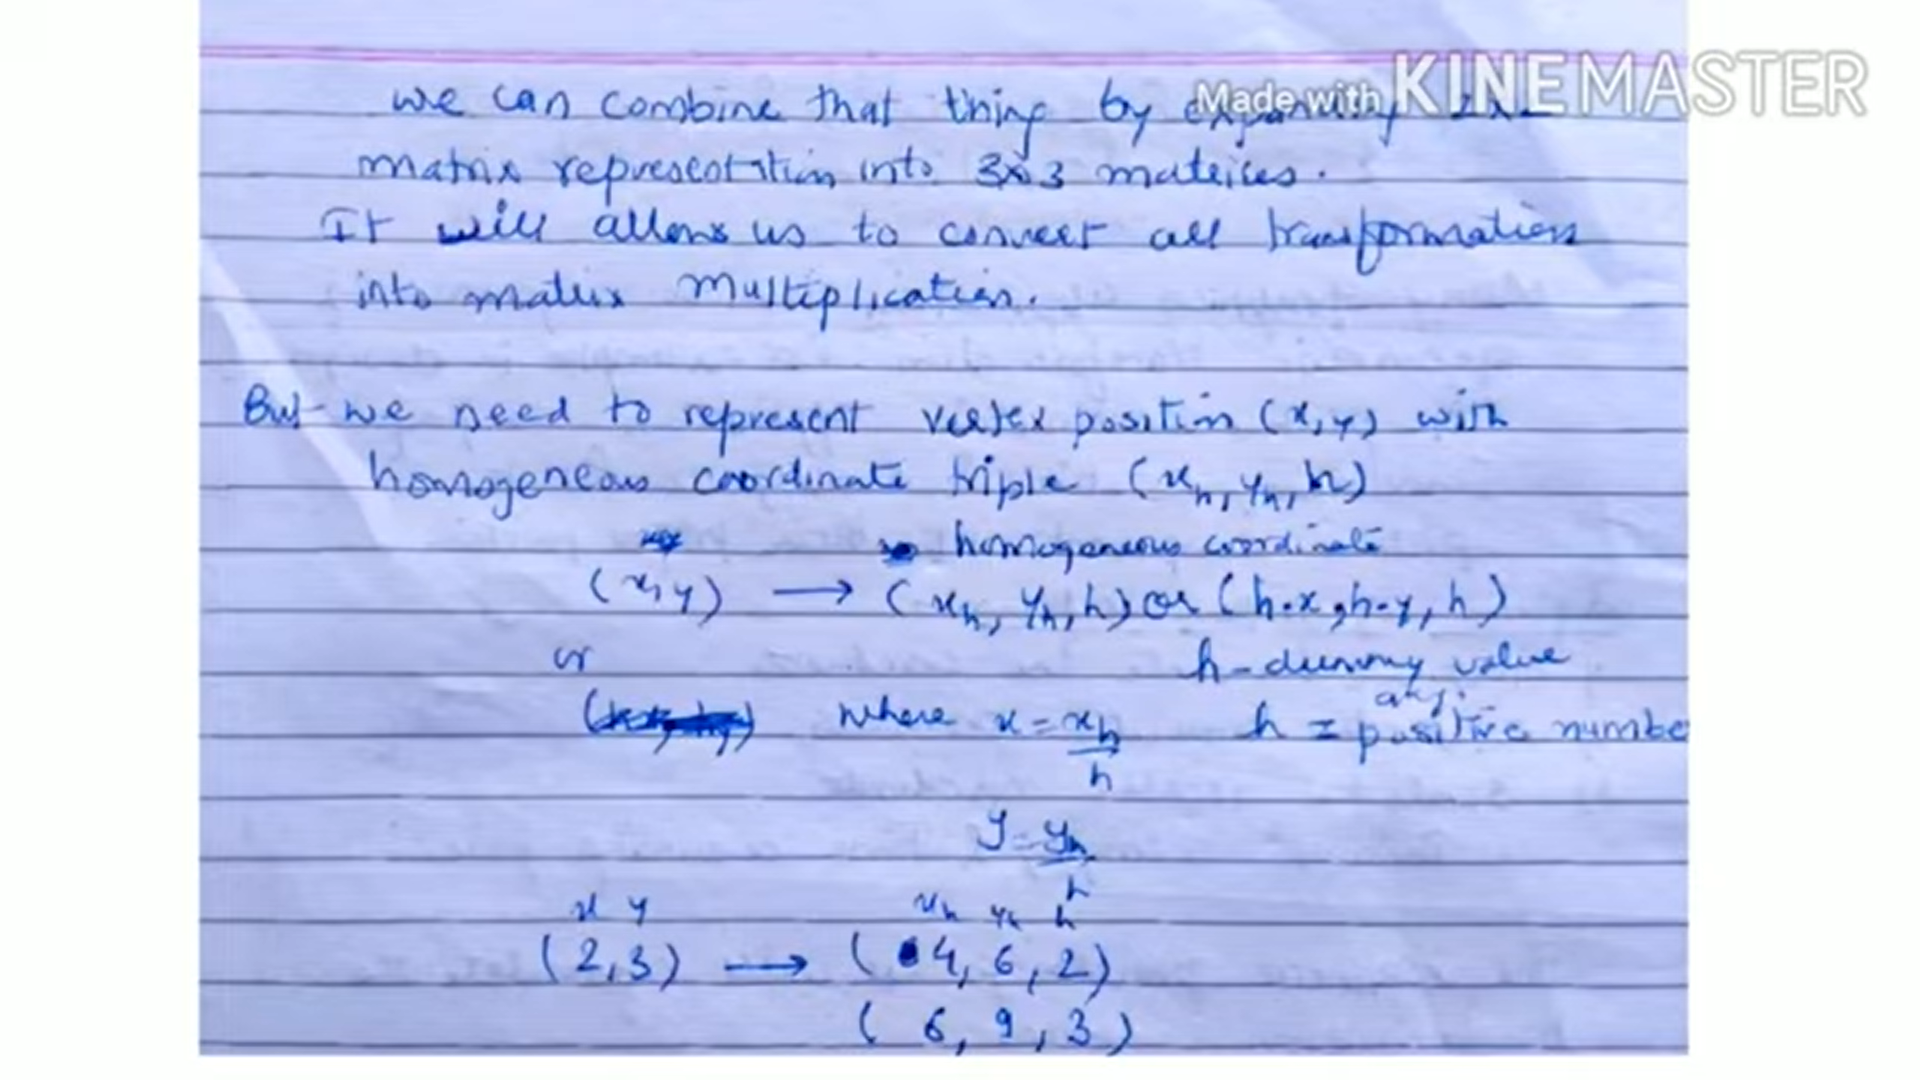 Made with KINEMASTER
we can combine that thing by expanding 2x2
matrix representation into 3x3 matrices.
It will allows us to convert all transformation
into matrix multiplication.
But we need to represent vertex position (x,y) with
homogeneous coordinate triple (xh, yh, h)
homogeneous coordinate
(x,y) → (xh, yh, h) or (h.x, h.y, h)
or h - dummy value
any
where x = xh/h h = positive numbe
y = yh/h
x y xh yh h
(2,3) → (4, 6, 2)
(6, 9, 3)